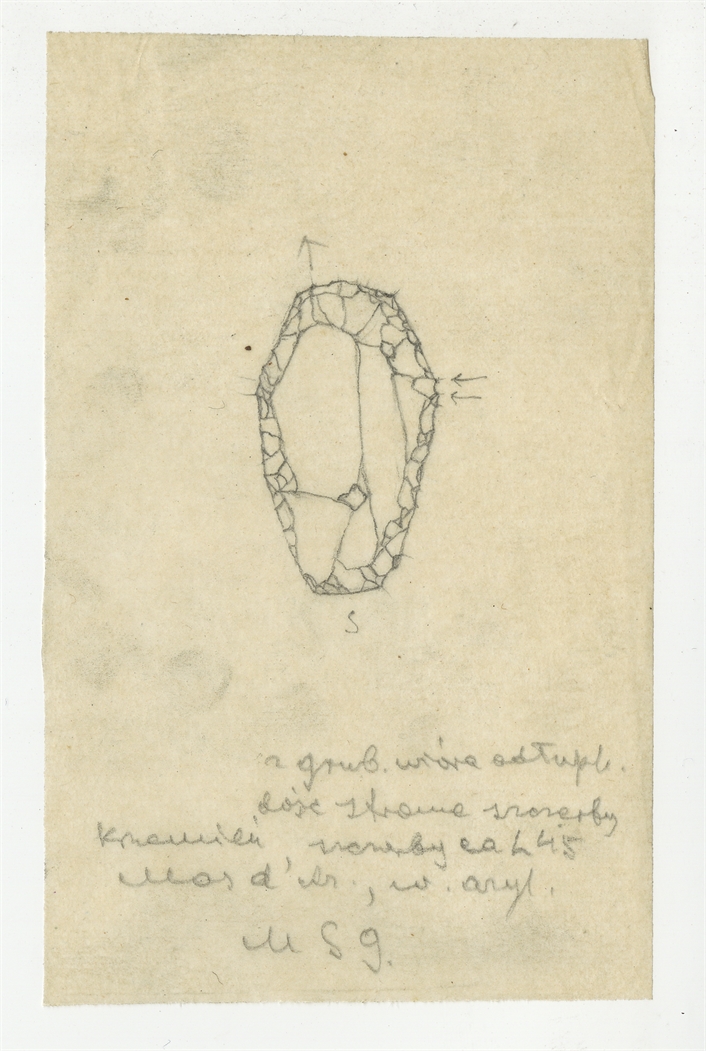 S
z grub. wióra odłupk.
dość strome szczerby
Krzemień, szczerby ca L 45
Mas d'Az., w. azyl.
M S g.